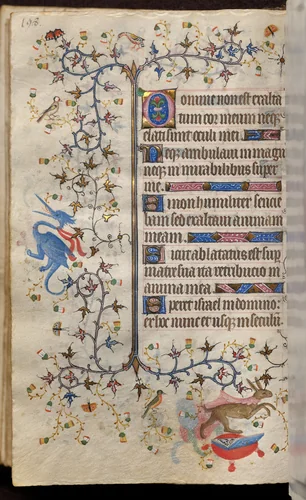 Domine non est exalta
tum cor meum neqz
elati sunt oculi mei.
Neqz ambulavi in magnis
neqz in mirabilibus super
me.
Si non humiliter sencie
bam sed exaltavi animam
meam.
Sicut ablactatus est sup
matre sua ita retribucio in
anima mea.
Speret israel in domino:
ex hoc nunc et usqz in seculu.